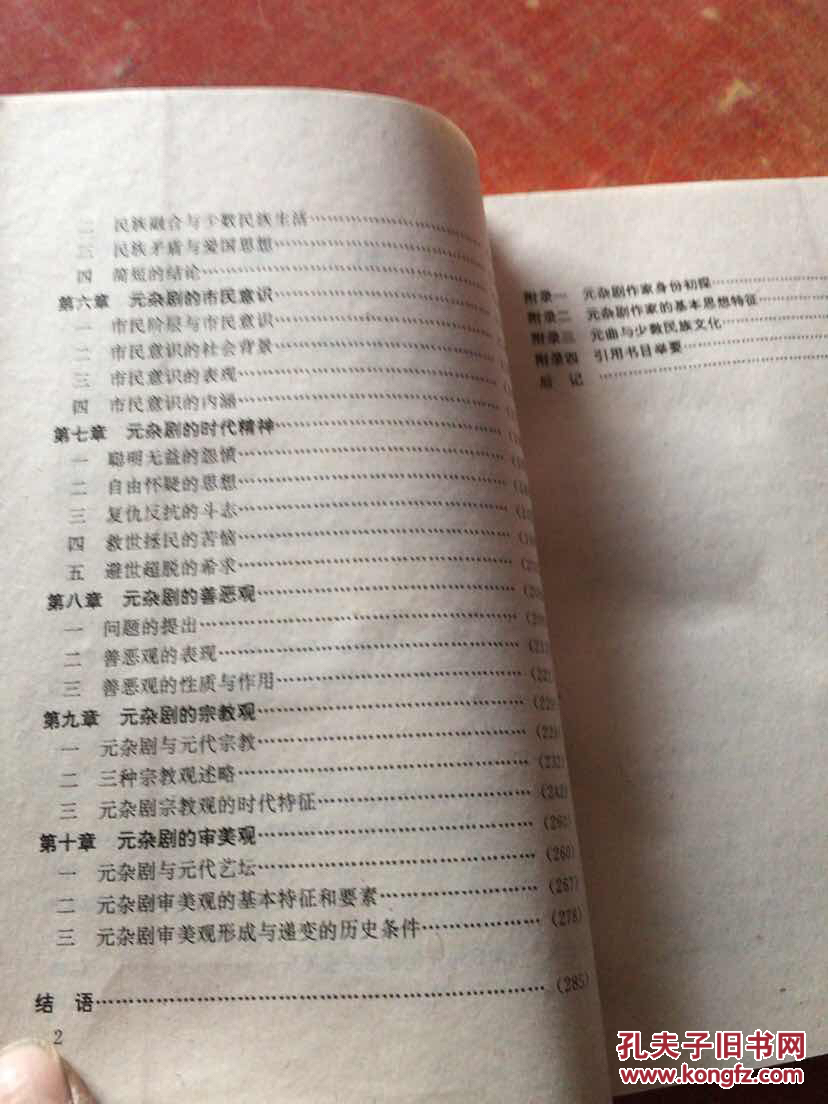 二 民族融合与少数民族生活
三 民族矛盾与爱国思想
四 简短的结论
第六章 元杂剧的市民意识
一 市民阶层与市民意识
二 市民意识的社会背景
三 市民意识的表现
四 市民意识的内涵
第七章 元杂剧的时代精神
一 聪明无益的怨愤
二 自由怀疑的思想
三 复仇反抗的斗志
四 救世拯民的苦恼
五 避世超脱的希求
第八章 元杂剧的善恶观
一 问题的提出
二 善恶观的表现
三 善恶观的性质与作用
第九章 元杂剧的宗教观 (229)
一 元杂剧与元代宗教 (229)
二 三种宗教观述略 (232)
三 元杂剧宗教观的时代特征 (242)
第十章 元杂剧的审美观 (260)
一 元杂剧与元代艺坛 (260)
二 元杂剧审美观的基本特征和要素 (267)
三 元杂剧审美观形成与递变的历史条件 (278)
结 语 (285)
2
附录一 元杂剧作家身份初探
附录二 元杂剧作家的基本思想特征
附录三 元曲与少数民族文化
附录四 引用书目举要
后 记
孔夫子旧书网
www.kongfz.com